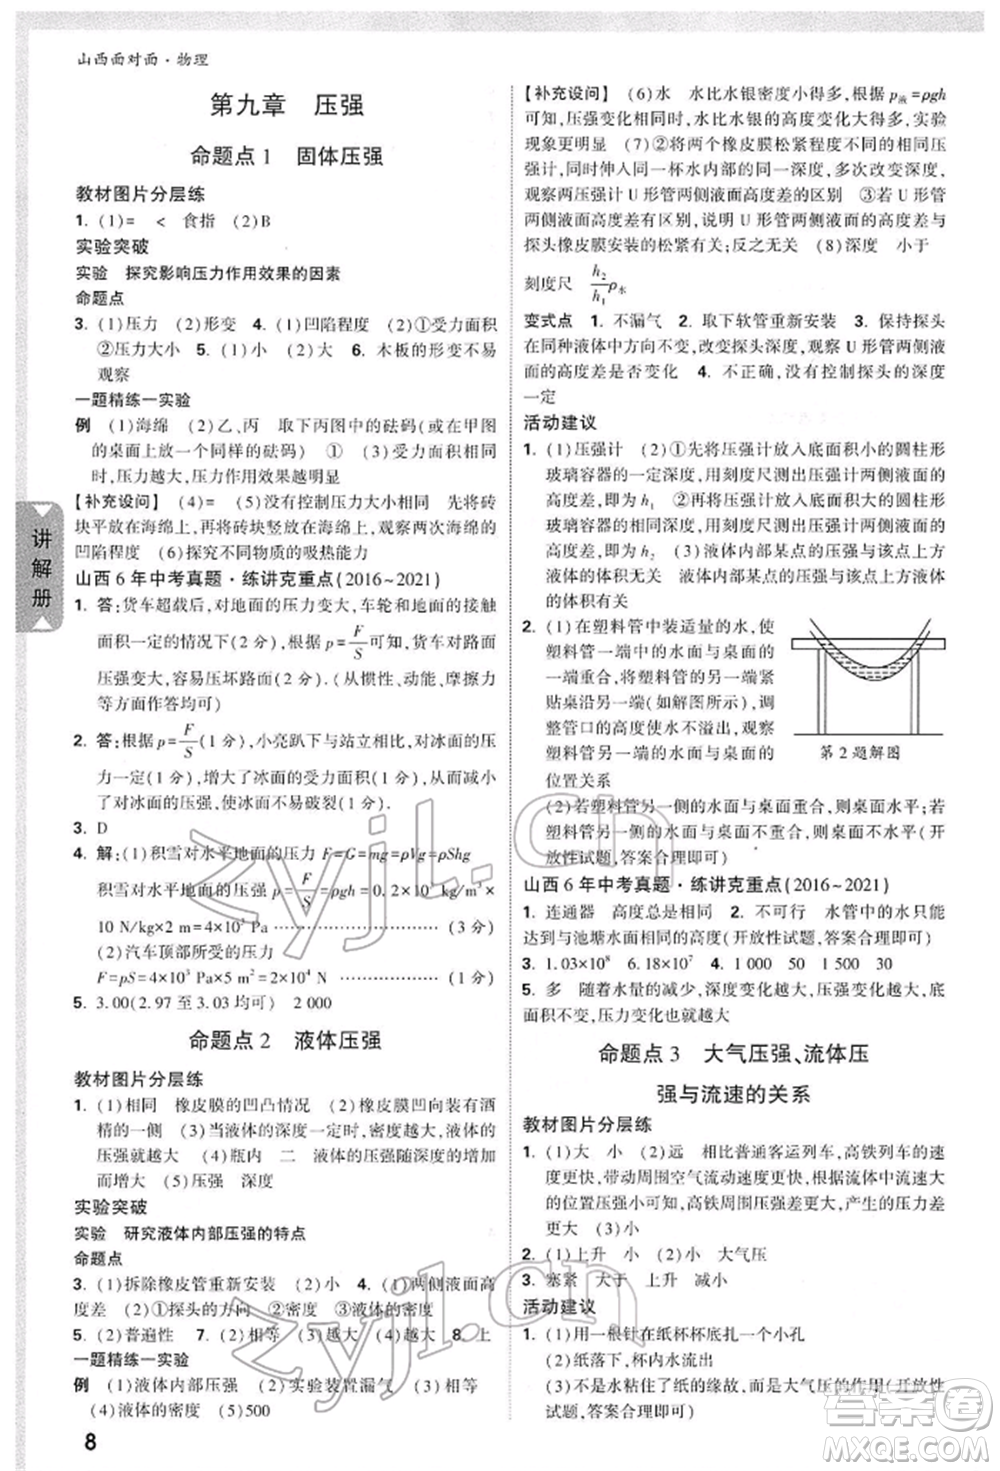 山西面对面·物理
第九章 压强
命题点1 固体压强
教材图片分层练
1. (1)= < 食指 (2)B
实验突破
实验 探究影响压力作用效果的因素
命题点
3. (1)压力 (2)形变 4. (1)凹陷程度 (2)①受力面积
②压力大小 5. (1)小 (2)大 6. 木板的形变不易
观察
一题精练一实验
例 (1)海绵 (2)乙、丙 取下丙图中的砝码(或在甲图
的桌面上放一个同样的砝码) ① (3)受力面积一
定时,压力越大,压力作用效果越明显
【补充设问】 (4)= (5)没有控制压力大小相同 先将砖
块平放在海绵上,再将砖块竖放在海绵上,观察两次海绵的
凹陷程度 (6)探究不同物质的吸热能力
山西6年中考真题·练讲克重点(2016~2021)
1. 答:货车超载后,对地面的压力变大,车轮和地面的接触
面积一定的情况下(2分),根据p=F/S可知,货车对路面的
压强变大,容易压坏路面(2分)(从惯性、动能、摩擦力
等方面作答均可)
2. 答:根据p=F/S(1分),小亮趴下与站立相比,对冰面的压
力一定(1分),增大了冰面的受力面积(1分),从而减小
了对冰面的压强,使冰面不易破裂(1分)
3. D
4. 解:(1)积雪对水平地面的压力F=G=mg=ρVg=ρShg
积雪对水平地面的压强p=F/S=ρgh=0.2×10³ kg/m³×
10 N/kg×2 m=4×10³ Pa ………… (3分)
(2)汽车顶部所受的压力
F=pS=4×10³ Pa×5 m²=2×10⁴ N ………… (1分)
5. 3.00(2.97至3.03均可) 2 000
命题点2 液体压强
教材图片分层练
1. (1)相同 橡皮膜的凹凸情况 (2)橡皮膜凹向装有酒
精的一侧 (3)当液体的深度一定时,密度越大,液体的
压强越大 (4)瓶内 二 液体的压强随深度的增加
而增大 (5)压强 深度
实验突破
实验 研究液体内部压强的特点
命题点
3. (1)拆除橡皮管重新安装 (2)小 4. (1)两侧液面高
度差 (2)①探头的方向 ②密度 ③液体的密度
5. (2)普遍性 7. (2)相等 (3)越大 (4)越大 8. 上
一题精练一实验
例 (1)液体内部压强 (2)实验装置漏气 (3)相等
(4)液体的密度 (5)500
8
【补充设问】 (6)水 水比水银密度小得多,根据p液=ρgh
可知,压强变化相同时,水比水银的高度变化大得多,实验
现象明显 (7)①取两个橡皮膜松紧程度不同的压
强计,同时伸入同一杯水内部的同一深度,多次改变深度,
观察两压强计U形管两侧液面高度差的区别 ③若U形管
两侧液面高度差有区别,说明U形管两侧液面的高度差与
探头橡皮膜安装的松紧有关;反之无关 (8)深度 小于
刻度尺 h₂/h₁ρ水
变式点 1. 不漏气 2. 取下软管重新安装 3. 保持探头
在同种液体中方向不变,改变探头深度,观察U形管两侧液面
的高度差是否变化 4. 不正确,没有控制探头的深度
一定
活动建议
1. (1)压强计 (2)①先将压强计放入底面积小的圆柱形
玻璃容器的一定深度,用刻度尺测出压强计两侧液面的
高度差,即为h₁ ②再将压强计放入底面积大的圆柱形
玻璃容器的相同深度,用刻度尺测出压强计两侧液面的
高度差,即为h₂ (3)液体内部某点的压强与该点上方
液体的体积无关 液体内部某点的压强与该点上方
液体的体积有关
2. (1)在塑料管中装适量的水,使
塑料管一端中的水面与桌面的
一端重合,将塑料管的另一端紧
贴桌沿(如解图所示),调
整管口的高度使水不溢出,观察
塑料管另一端的水面与桌面的
位置关系
第2题解图
(2)若塑料管另一侧的水面与桌面相平,则桌面水平;若
塑料管另一侧的水面与桌面不重合,则桌面不水平(开
放性试题,答案合理即可)
山西6年中考真题·练讲克重点(2016~2021)
1. 连通器 高度总是相同 2. 不可行 水管中的水只能
达到与池塘水面相同的高度(开放性试题,答案合理即可)
3. 1.03×10⁸ 6.18×10⁷ 4. 1 000 50 30
5. 多 随着水量的减少,深度变化越大,压强变化越大,底
面积不变,压力变化也就越大
命题点3 大气压强、流体压
强与流速的关系
教材图片分层练
1. (1)大 小 (2)远 相比普通客运列车,高铁列车的速
度更快,带动周围空气流动速度更大,根据流体中流速大
的位置压强小可知,高铁周围压强差更大,产生的压力差
更大 (3)小
2. (1)上升 小 大气压
3. 塞紧 大于 上升 减小
活动建议
1. (1)用一根针在纸杯杯底扎一个小孔
(2)纸落下,杯内水流出
(3)不是水粘住了纸的缘故,而是大气压的作用(开放性
试题,答案合理即可)
讲解册
zyjl.cn
zyjl.cn
答案圈
MXQE.COM